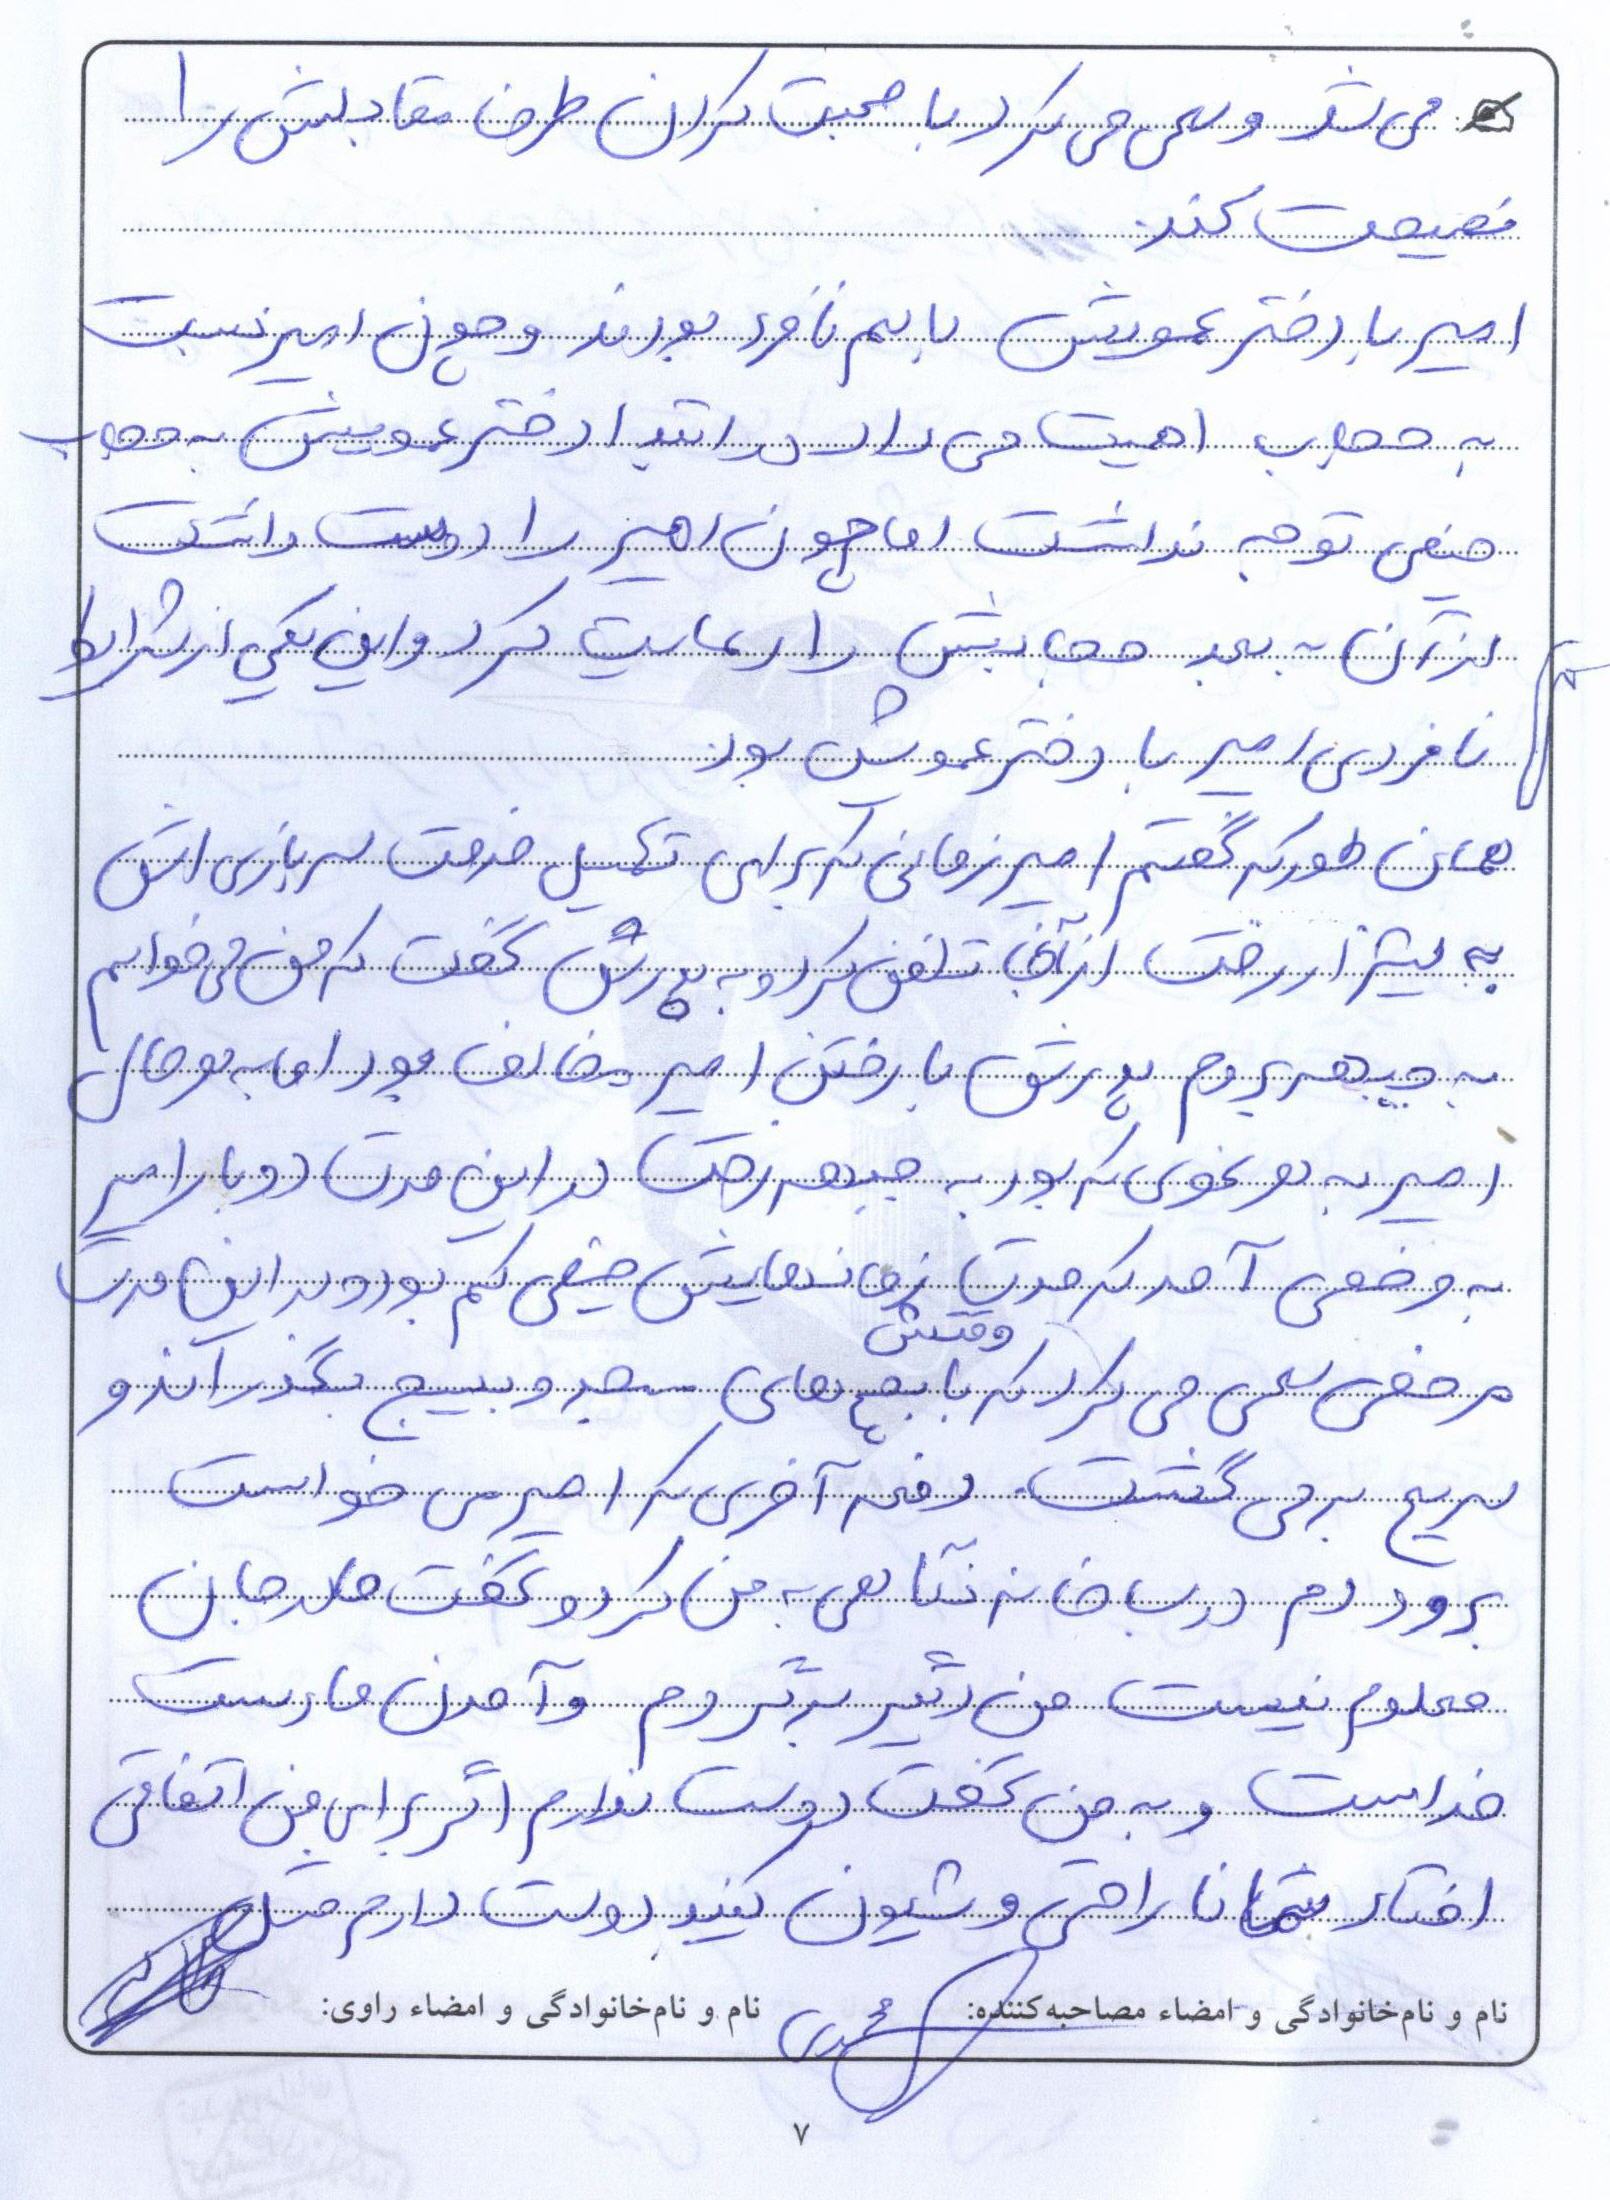 می شد و سعی می کرد با صحبت کردن طرف مقابلش را
نصیحت کند.
امیر با دختر عمویش با هم نامزد بودند و چون امیر نسبت
به حجاب اهمیت می داد در ابتدا دختر عمویش به حجاب
خیلی توجه نداشت اما چون امیر را دوست داشت
از آن به بعد حجابش را رعایت کرد و این یکی از شرایط
نامزدی امیر با دختر عمویش بود.
همان طور که گفتم امیر زمانی که برای تکمیل خدمت سربازی اش
به شیراز رفت از آنجا تلفن کرد و به پدرش گفت که من می خواهم
به جبهه بروم پدرش با رفتن امیر مخالف بود اما به هر حال
امیر به هر نحوی که بود به جبهه رفت در این مدت دوبار امیر
به مرخصی آمد که مدت زمانهایش خیلی کم بود و در این مدت
وقتش
مرخصی سعی می کرد که با بچه های مسجد و بسیج بگذراند و
سریع برمی گشت. دفعه آخری که امیر می خواست
برود دم درب خانه نگاهی به من کرد و گفت مادر جان
معلوم نیست من دیگر برگردم و آمدن ما دست
خداست و به من گفت دوست ندارم اگر برای من اتفاقی
افتاد شما ناراحتی و شیون کنید دوست دارم مثل
نام و نام‌خانوادگی و امضاء مصاحبه‌کننده:
نام و نام‌خانوادگی و امضاء راوی:
۷